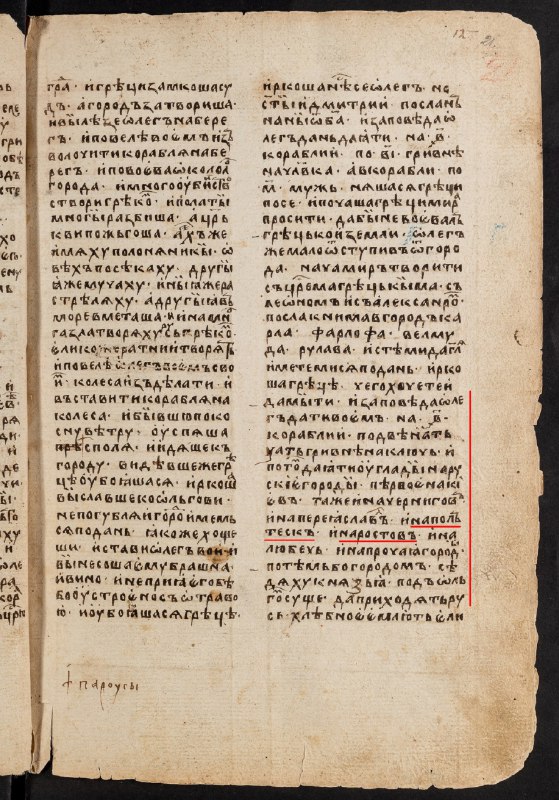 12
гра҃ . и грѣци замкоша су
дъ . а городъ затвориша
и вылѣзе ѡлегъ на бере
гъ . и повелѣ воѥмъ изъ
волочити корабля на бе
регъ . и повоѥва ѡколо
города . и много оубииств
створи грѣко . и полаты
многы разбиша . а цр҃ь
кви пожьгоша . а ихъ же
имяху полоняникы . ѡ
вѣхъ посѣкаху . другы
я же мучаху . ины я же ра
стрѣляху . а другыя въ
море вметаша . и ина мн
га зла творяху русь грѣко
ѡлико же ратнии творят
и повелѣ ѡлегъ воѥмъ сво
и . колеса издѣлати . и
въставити корабля на
колеса . и бывшю поко
сну вѣтру . оуспяша
прѣ с поля . и идяше къ
городу . видѣвше же грѣ
цѣ оубоꙗшася . и ркоша
выславше ко ѡльгови .
не погубляи горо имемь
ся по дань . ꙗко же хоще
ши . и стави ѡлегъ вои . и
вынесоша ѥму брашна
и вино . и не приꙗ ѥго бѣ
бо оустроено съ ѿраво
ю . и оубоꙗшася грѣцѣ .
и ркоша нѣсе ѡлегъ . но
ст҃ыи дмитрии послань
на ны ѿ ба . и заповѣда ѡ
легъ дань даꙗти . на в҃
кораблии . по в҃і гривнѣ
на чл҃вка . а в корабли . по
м҃ мужь . няшася грѣци
по се . и почаша грѣци мир
просити . дабы не воѥвалъ
грѣцькои земли . ѡлегъ
же мало ѿступивъ ѿ горо
да . нача миръ творити
съ цр҃ма грѣцькыма . съ
леѡномъ и съ алексанро
посла к ни ма в городъ ка
рла . фарлофа . велму
да . рулава . и стѣмида гл҃ѧ
имете ми ся по дань . и рко
ша грѣцѣ . чего хочете и
дамы ти . и заповѣда ѡле
гъ дати воѥмъ . на . в҃ .
кораблии . по двѣнать
чать гривнѣ на ключь . и
пото даꙗти оуглады на ру
скиѥ городы . первое на ки
ѥвъ . таже и на чернигов
и на переꙗславъ . и на поль
тескъ . и на ростовъ . и на
любечь . и на прочаꙗ город .
по тѣмь бо городомъ . сѣ
дяху князьꙗ . подъ ѡль
го суще . да приходять ру
сь хлѣбное ѥмлють ѥли